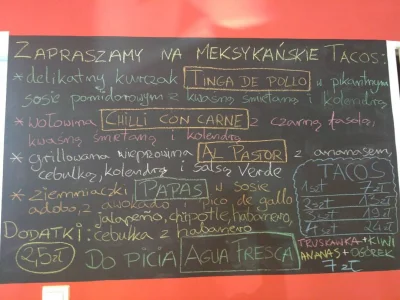 ZAPRASZAMY NA MEKSYKAŃSKIE TACOS:
* delikatny kurczak TINGA DE POLLO w pikantnym
sosie pomidorowym z kwaśną śmietaną i kolendrą
* wołowina CHILLI CON CARNE z czarną fasolą,
kwaśną śmietaną i kolendrą
* grillowana wieprzowina AL PASTOR z ananasem,
cebulką, kolendrą i salsą Verde
* ziemniaczki PAPAS w sosie
adobo, z awokado i pico de gallo
jalapeño, chipotle, habanero,
DODATKI: cebulka z habanero
2,5zł
TACOS
1szt 7zł
2szt 13
3szt 19
4szt 24
DO PICIA AGUA FRESCA
TRUSKAWKA + KIWI
ANANAS + OGÓREK
7 zł